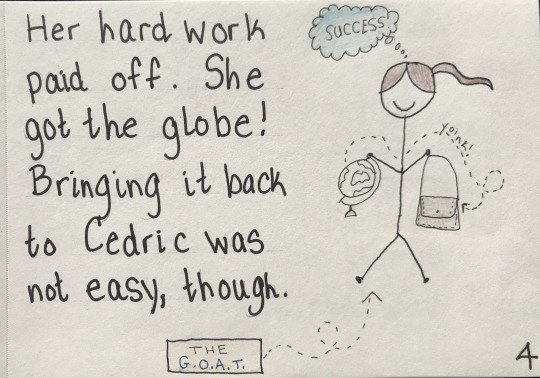 Her hard work
paid off. She
got the globe!
Bringing it back
to Cedric was
not easy, though.
SUCCESS
yoink!
THE
G.O.A.T.
4